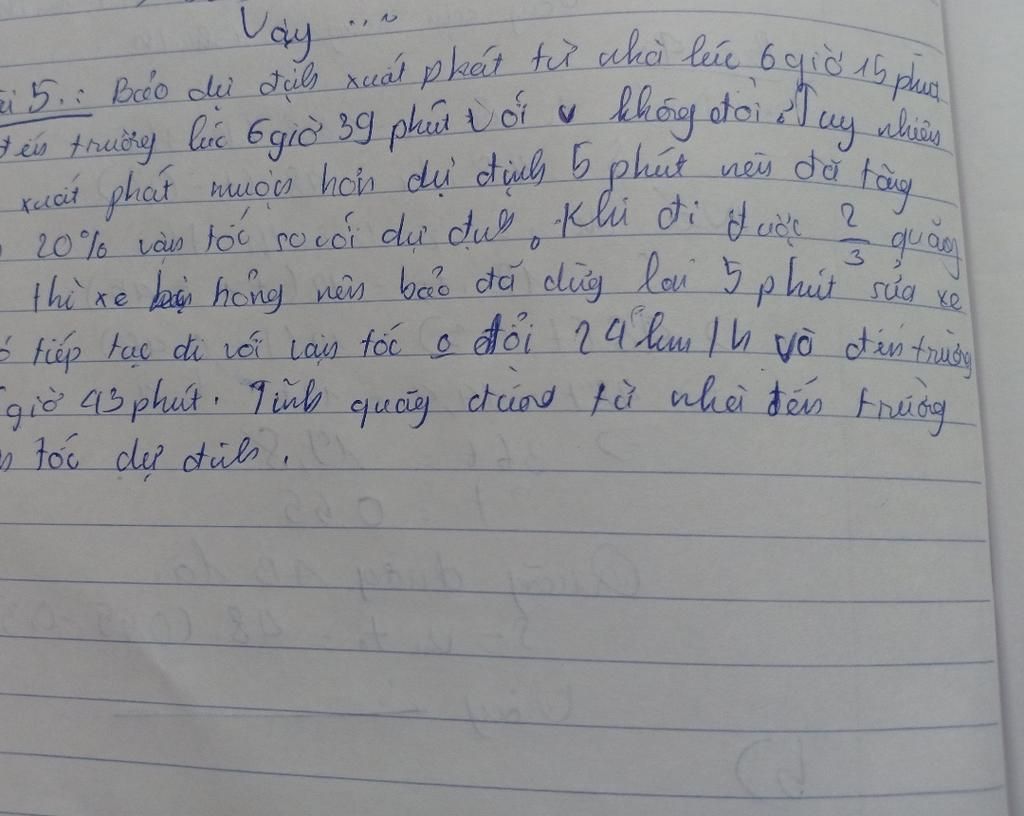 Vậy ...
5.: Bảo dự định xuất phát từ nhà lúc 6 giờ 15 phút
đến trường lúc 6 giờ 39 phút với v không đổi. Tuy nhiên
xuất phát muộn hơn dự định 5 phút nên đã tăng
20% vận tốc so với dự định. Khi đi được 2/3 quãng
thì xe hỏng nên bảo đã dừng lại 5 phút sửa xe
tiếp tục đi với vận tốc o đổi 24 km/h và đến trường
giờ 43 phút. Tính quãng đường từ nhà đến trường
tốc dự định.